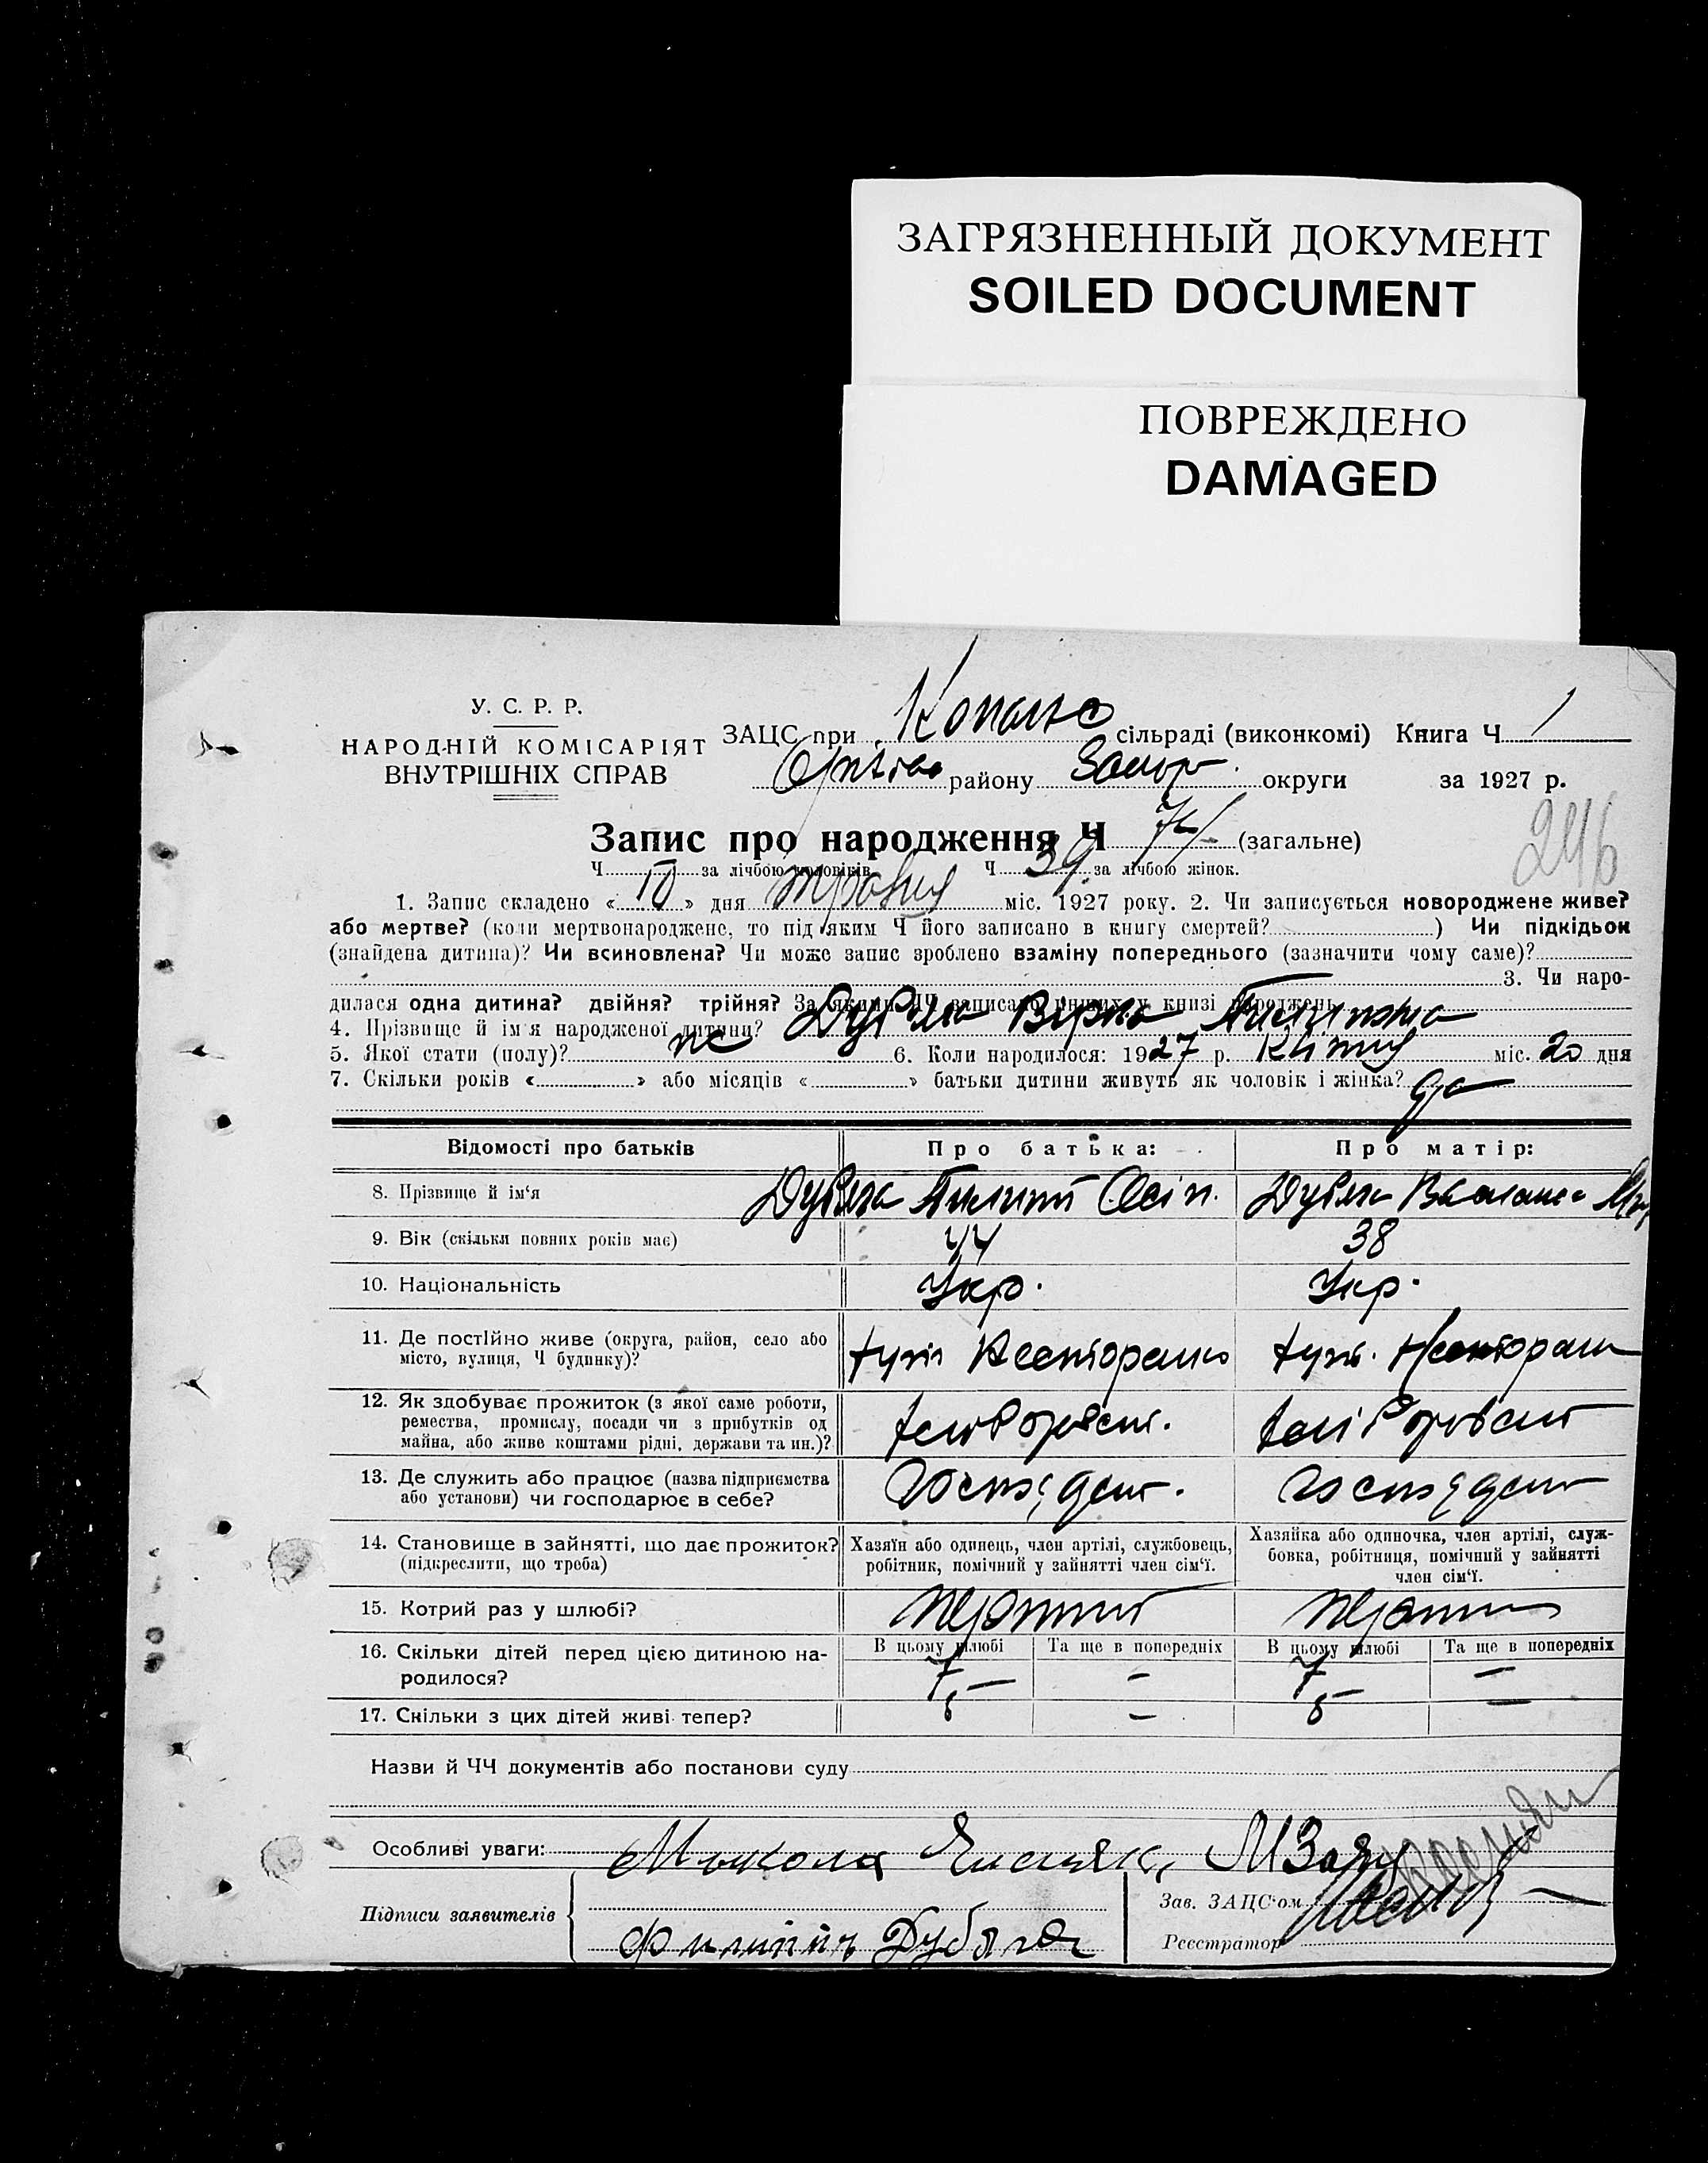 ЗАГРЯЗНЕННЫЙ ДОКУМЕНТ
SOILED DOCUMENT
ПОВРЕЖДЕНО
DAMAGED
У. С. Р. Р.
НАРОДНІЙ КОМІСАРІЯТ
ВНУТРІШНІХ СПРАВ
ЗАЦС при Копано сільраді (виконкомі) Книга Ч. 1
району Запор. округи за 1927 р.
246
Запис про народження Ч (загальне)
Ч за лічбою чоловіків Ч 39 за лічбою жінок.
1. Запис складено « 10 » дня травня міс. 1927 року. 2. Чи записується новороджене живе?
або мертве? (коли мертвонароджене, то під яким Ч його записано в книгу смертей? ) Чи підкідьок
(знайдена дитина)? Чи всиновлена? Чи може запис зроблено взаміну попереднього (зазначити чому саме)?
3. Чи наро-
дилася одна дитина? двійня? трійня? За якими ЧЧ записано инших у книзі народжень
4. Прізвище й ім'я народженої дитини? Дубяга Вірка Пилиповна
5. Якої стати (полу)? же 6. Коли народилося: 1927 р. Квітня міс. 20 дня
7. Скільки років « » або місяців « » батьки дитини живуть як чоловік і жінка? да
Відомості про батьків Про батька: Про матір:
8. Прізвище й ім'я Дубяга Пилип Осіп. Дубяга
9. Вік (скільки повних років має) 44 38
10. Національність Укр. Укр.
11. Де постійно живе (округа, район, село або
місто, вулиця, Ч будинку)?
12. Як здобуває прожиток (з якої саме роботи,
ремества, промислу, посади чи з прибутків од
майна, або живе коштами рідні, держави та ин.)?
13. Де служить або працює (назва підприємства
або установи) чи господарює в себе?
14. Становище в зайнятті, що дає прожиток?
(підкреслити, що треба)
Хазяїн або одинець, член артілі, службовець,
робітник, помічний у зайнятті член сім'ї.
Хазяйка або одиночка, член артілі, служ-
бовка, робітниця, помічний у зайнятті
член сім'ї.
15. Котрий раз у шлюбі?
16. Скільки дітей перед цією дитиною на-
родилося?
В цьому шлюбі Та ще в попередніх В цьому шлюбі Та ще в попередніх
7 — – 7 —
17. Скільки з цих дітей живі тепер? – 5 —
Назви й ЧЧ документів або постанови суду
Особливі уваги: Микола
Підписи заявителів
Филипъ Дубяга
Зав. ЗАЦС'ом
Реєстратор